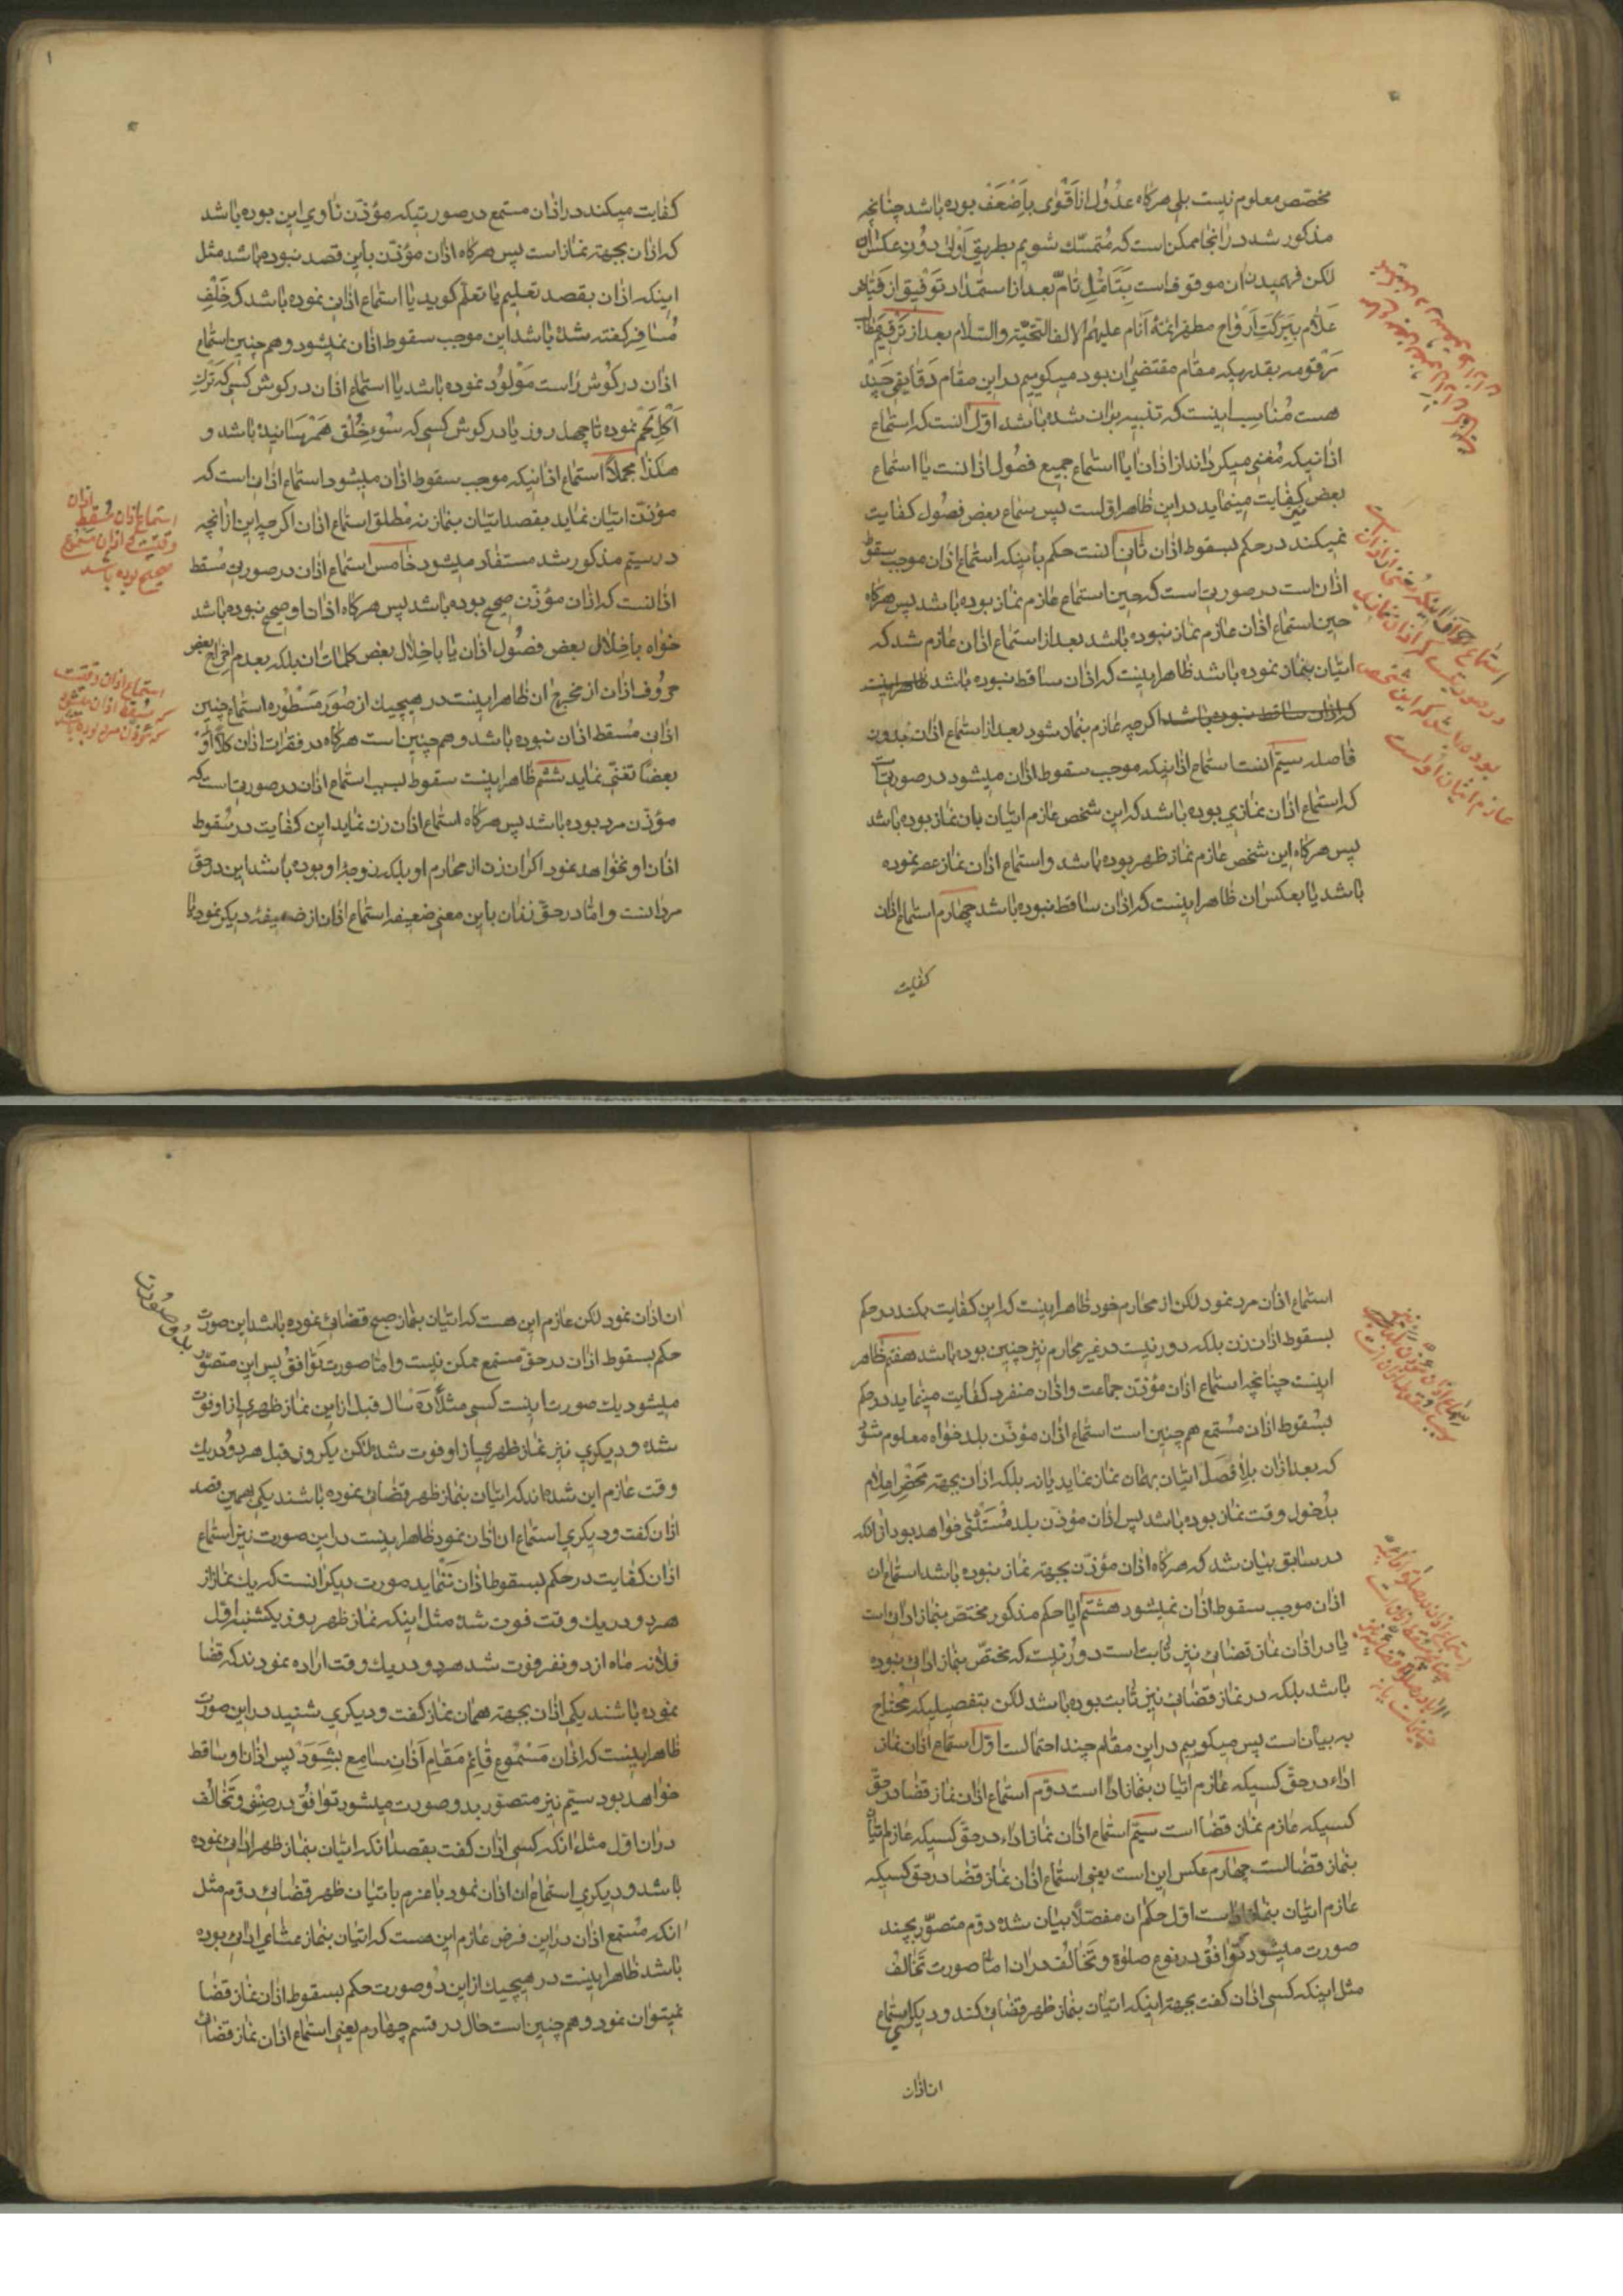 مختصّ معلوم نیست بلی هرکاه عدُول از اَقْوٰی باَضْعَفْ بوده باشد چنانچه
مذکور شد در انجا ممکن است که مُتمسّك شویم بطریق اَوْلی بدُونِ عکس ان
لکن فهمیدن ان موقوفست بِتَأمُّلِ تامّ بعد از استمداد توفیق از
علّام بِبَرکَت اَرْواح مطهّر ائمّهٔ اَنام علیهم الاف التحیّة والسّلام بعد از تَرْقیم
مَرْقومه بقدریکه مقام مقتضی ان بود میکوییم در این مقام دقایقِ چند
هست مُناسب اینست که تنبیه بران شده باشد اوّل انست که استماع
اذانیکه مُغنی میکرداند از اذان ایا استماع جمیع فصُول اذانست یا استماع
بعض نیز کفایت مینماید در این ظاهر اوّلست پس سماع بعض فصُول کفایت
نمیکند در حکم بسقوط اذان ثانی انست حکم باینکه استماع اذان موجب سقوط
اذان است در صورتیست که حین استماع عازم نماز بوده باشد پس هرکاه
حین استماع اذان عازم نماز نبوده باشد بعد از استماع اذان عازم شد که
اتیان بنماز نموده باشد ظاهر اینست که اذان ساقط نبوده باشد ظاهر اینست
که اذان ساقط نبوده باشد اکرچه عازم بنماز شود بعد از استماع اذان بدون
فاصله سیّم انست استماع اذانیکه موجب سقوط اذان میشود در صورتیست
که استماع اذان نمازی بوده باشد که این شخص عازم اتیان بان نماز بوده باشد
پس هرکاه این شخص عازم نماز ظهر بوده باشد و استماع اذان نماز عصر نموده
باشد یا بعکس ان ظاهر اینست که اذان ساقط نبوده باشد چهارم استماع اذان
کفایت
استماع اذان
در صورتیست که اذان نمازی
بوده باشد که این شخص
عازم اتیان اوست
کفایت میکند در اذان مستمع در صورتیکه مؤذّن ناوی این بوده باشد
که اذان بجهة نماز است پس هرکاه اذان مؤذّن باین قصد نبوده باشد مثل
اینکه اذان بقصد تعلیم یا تعلّم کوید یا استماع اذانی نموده باشد که خَلْفِ
مُسافِر کفته شده باشد این موجب سقوط اذان نمیشود و هم چنین استماع
اذان در کوش راست مَوْلُود نموده باشد یا استماع اذان در کوش کسی که تَرْكِ
اَکْلِ لَحْم نموده تا چهل روز یا در کوش کسی که سُوءِ خُلْق همرسانیده باشد و
هکذا مجملًا استماع اذانیکه موجب سقوط اذان میشود استماع اذانی است که
مؤذّن اتیان نماید بقصد اتیان بنماز نه مُطلق استماع اذان اکرچه این از انچه
در سیّم مذکور شد مستفاد میشود خامس استماع اذان در صورتی مُسقط
اذانست که اذان مؤذّن صحیح بوده باشد پس هرکاه اذان او صحیح نبوده باشد
خواه باخلال بعض فصُول اذان یا باخلال بعض کلمات ان بلکه بعدم اخراج بعض
حروف اذان از مخرج ان ظاهر اینست در هیچیك از صُوَرِ مَسْطُوره استماع چنین
اذانی مُسقط اذان نبوده باشد و هم چنین است هرکاه در فقرات اذان کلًّا اَوْ
بعضًا تغنّی نماید ششم ظاهر اینست سقوط بسبب استماع اذان در صورتی است که
مؤذّن مرد بوده باشد پس هرکاه استماع اذان زن نماید این کفایت در سُقوط
اذان او نخواهد نمود اکر ان زن از محارم او بلکه زوجهٔ او بوده باشد این در حقّ
مردانست و امّا در حقّ زنان باین معنی ضعیفه استماع اذان از ضعیفهٔ دیکر نمود یا
استماع اذان مُسقط اذان
وقتیست که اذان مسموع
صحیح بوده باشد
استماع اذان وقتیست
که مُسقط اذان میشود
که مؤذّن مرد بوده باشد
استماع اذان مرد نمود لکن از محارم خود ظاهر اینست که این کفایت بکند در حکم
بسقوط اذان زن بلکه دور نیست در غیر محارم نیز چنین بوده باشد هفتم ظاهر
اینست چنانچه استماع اذان مؤذّن جماعت و اذان منفرد کفایت مینماید در حکم
بسُقوط اذان مُستمع هم چنین است استماع اذان مؤذّن بلد خواه معلوم شود
که بعد اذان بلا فَصْل اتیان بهمان نماز نماید یا نه بلکه اذان بجهة مَحْضِ اِعْلام
بدُخول وقت نماز بوده باشد پس اذان مؤذّن بلد مُسْتَثْنی خواهد بود از انکه
در سابق بیان شد که هرکاه اذان مؤذّن بجهة نماز نبوده باشد استماع ان
اذان موجب سقوط اذان نمیشود هشتم ایا حکم مذکور مختصّ بنماز ادائی است
یا در اذان نماز قضائی نیز ثابت است دور نیست که مختصّ بنماز ادائی نبوده
باشد بلکه در نماز قضائی نیز ثابت بوده باشد لکن بتفصیلیکه مُحتاج
به بیان است پس میکوییم در این مقام چند احتمالست اوّل استماع اذان نماز
اداء در حقّ کسیکه عازم اتیان بنماز اداء است دوّم استماع اذان نماز قضا در حقّ
کسیکه عازم نماز قضا است سیّم استماع اذان نماز اداء در حقّ کسیکه عازم اتیان
بنماز قضاست چهارم عکس این است یعنی استماع اذان نماز قضا در حق کسیکه
عازم اتیان بنماز اداست اوّل حکم ان مفصّلًا بیان شده دوّم متصوّر بچند
صورت میشود تَوافُق در نوع صلوة و تَخالُف در ان امّا صورت تَخالُف
مثل اینکه کسی اذان کفت بجهة اینکه اتیان بنماز ظهر قضائی کند و دیکری استماع
ان اذان
ان اذان نمود لکن عازم این هست که اتیان بنماز صبح قضائی نموده باشد این صورت
حکم بسقوط اذان در حقّ مستمع ممکن نیست و امّا صورت تَوافُق پس این متصوّر
بدو صورت
میشود یك صورت اینست کسی مثلًا دَه سال قبل از این نماز ظهری از او فوت
شده و دیکری نیز نماز ظهری از او فوت شده لکن یکروز قبل هردُو در یك
وقت عازم این شده اند که اتیان بنماز ظهر قضائی نموده باشند یکی بهمین قصد
اذان کفت و دیکری استماع ان اذان نمود ظاهر اینست در این صورت نیز استماع
اذان کفایت در حکم بسقوط اذان ننماید صورت دیکر انست که یك نماز از
هردو در یك وقت فوت شده مثل اینکه نماز ظهر روز یکشنبه اوّل
فلانه ماه از دو نفر فوت شد هردو در یك وقت اراده نمودند که قضا
نموده باشند یکی اذان بجهة همان نماز کفت و دیکری شنید در این صورت
ظاهر اینست که اذان مَسْمُوع قائم مَقام اَذانِ سامِع بِشَوَد پس اذان او ساقط
خواهد بود سیّم نیز متصوّر بدو صورت میشود توافُق در صِنْف و تَخالُف
در ان اوّل مثل انکه کسی اذان کفت بقصد انکه اتیان بنماز ظهر ادائی نموده
باشد و دیکری استماع ان اذان نمود با عزم باتیان ظهر قضائی دوّم مثل
انکه مُستمع اذان در این فرض عازم این هست که اتیان بنماز عشای ادائی بوده
باشد ظاهر اینست در هیچیك از این دُو صورت حکم بسقوط اذان نماز قضا
نمیتوان نمود و هم چنین است حال در قسم چهارم یعنی استماع اذان نماز قضائی